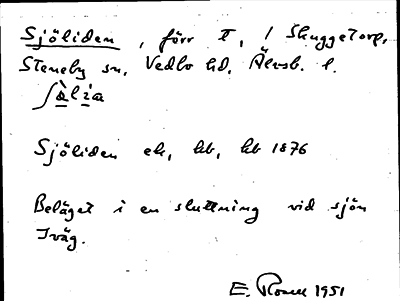 Sjöliden, förr tt, / Skuggetorp,
Steneby sn, Vedbo hd, Älvsb. l.
ʃàlia
Sjöliden ek, hb, kb 1876
Beläget i en sluttning vid sjön
Iväg.
E. Rosell 1951